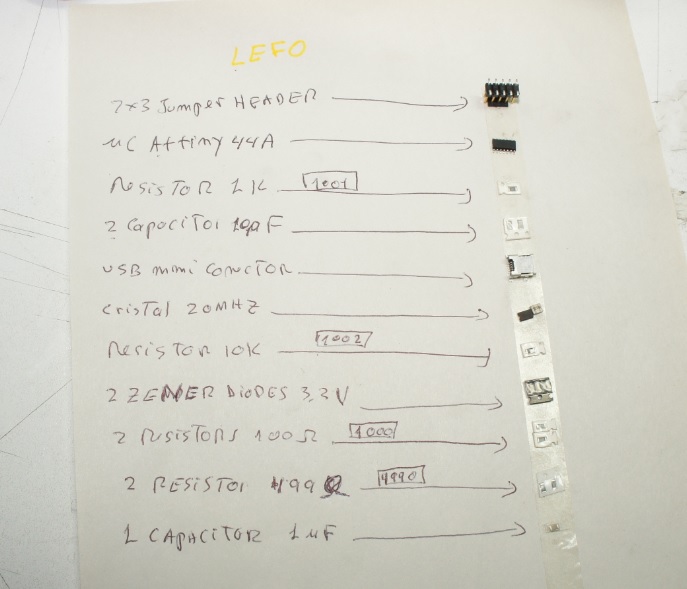 LEFO
2x3 Jumper HEADER
uC Attiny 44A
Resistor 1K 1001
2 Capacitor 10pF
USB mini conector
cristal 20MHZ
Resistor 10K 1002
2 ZENER DIODES 3.3V
2 RESISTORS 100Ω 1000
2 RESISTOR 499Ω 4990
1 CAPACITOR 1uF